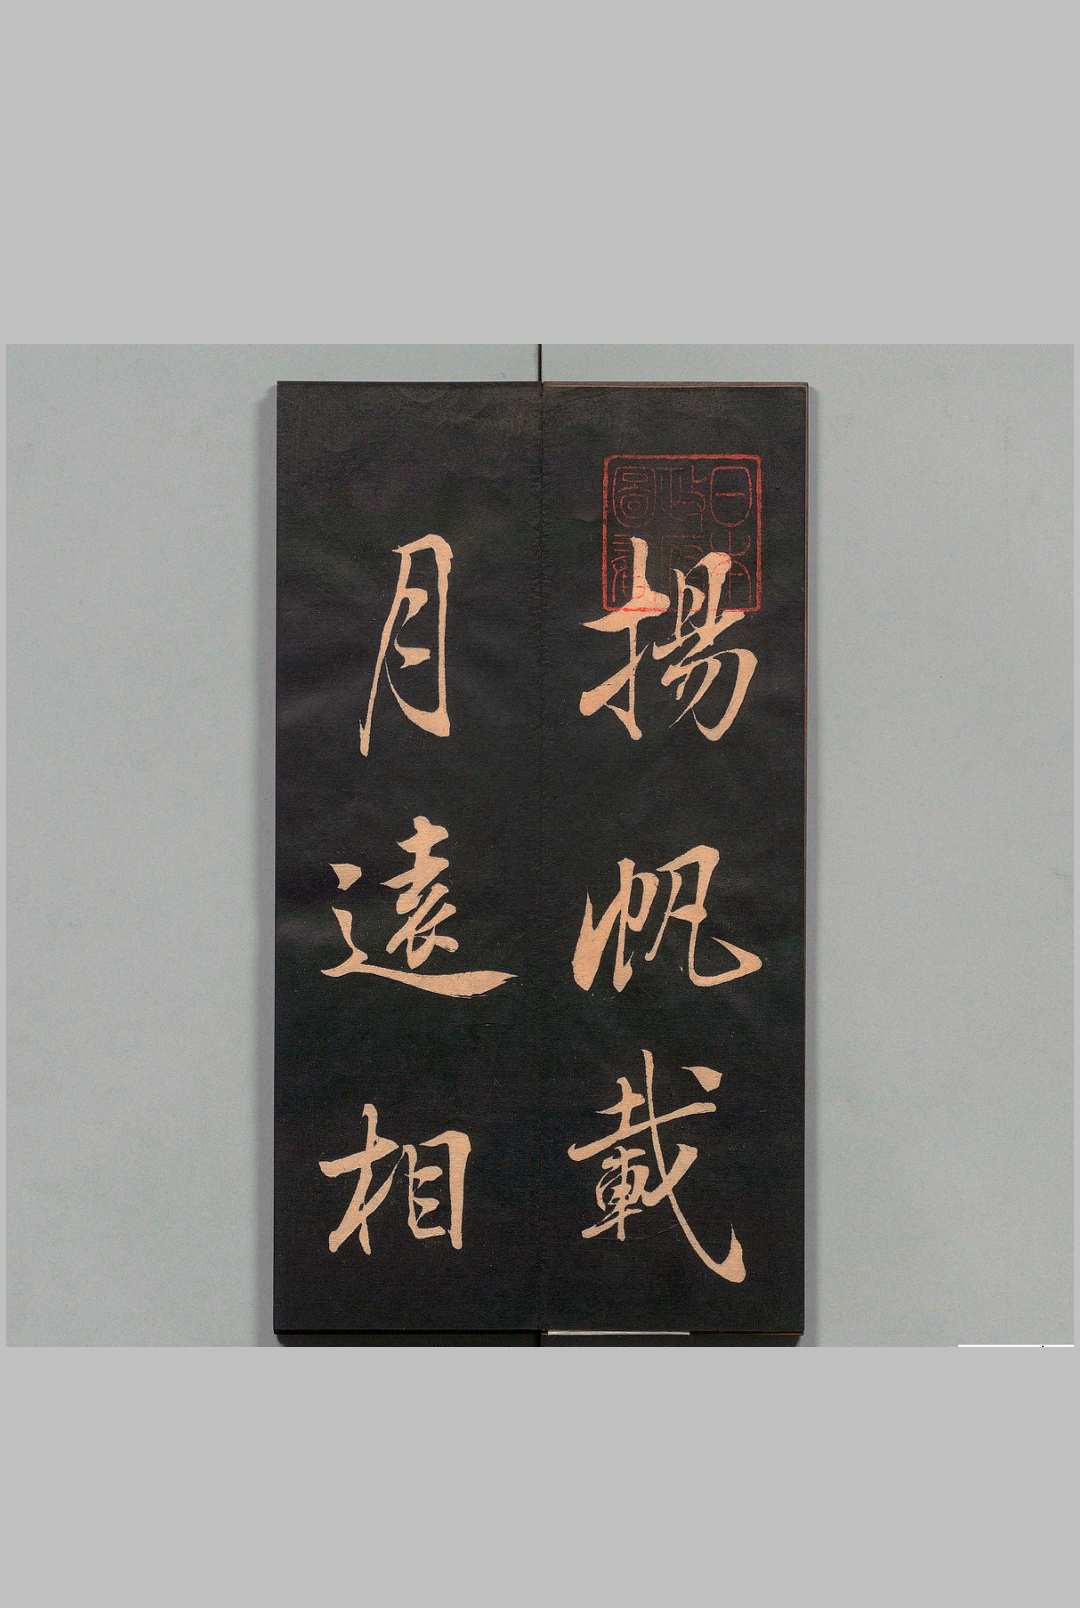 揚帆載
月遠相